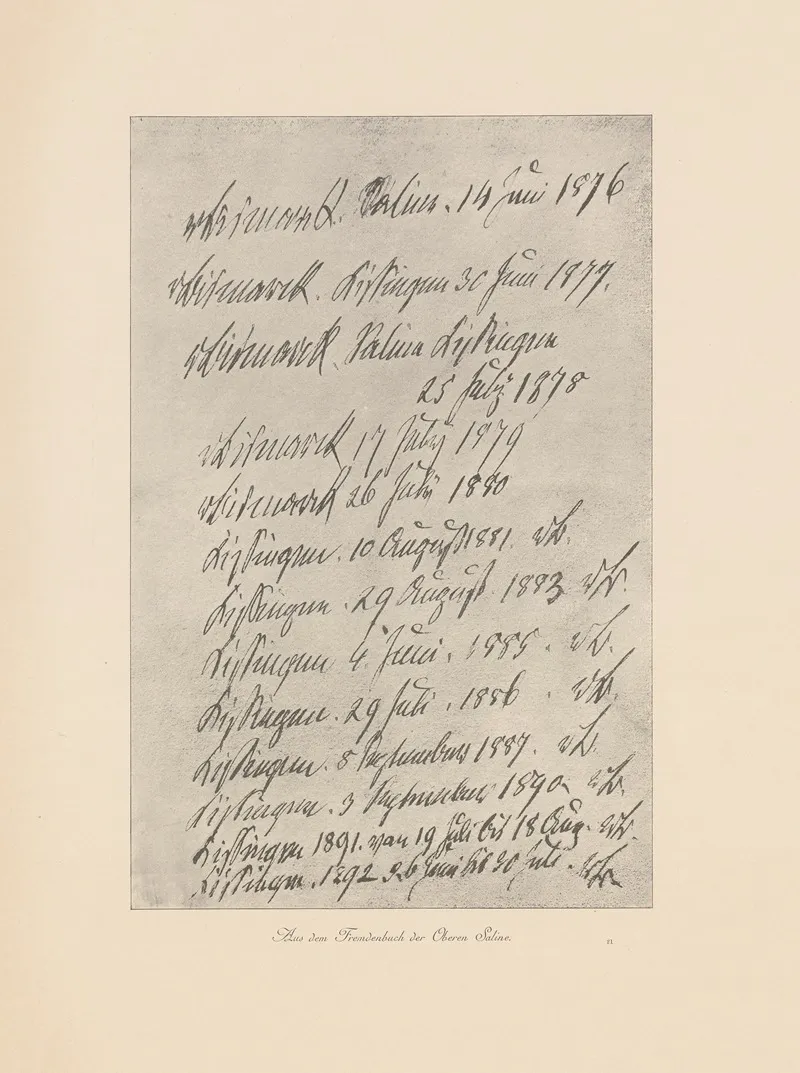 vBismarck. Saline. 14 Juni 1876
vBismarck. Kissingen 30 Juni 1877.
vBismarck Saline Kissingen
25 July 1878
vBismarck 17 July 1879
vBismarck 26 July 1880
Kissingen. 10 August 1881. vB.
Kissingen. 29 August 1883 vB.
Kissingen 4. Juni. 1885. vB.
Kissingen. 29 Juli. 1886. vB.
Kissingen. 8 September 1887. vB.
Kissingen. 3 September 1890. vB.
Kissingen 1891. von 19 Juli bis 18 Aug. vB.
Kissingen. 1892 26 Juni bis 30 Juli. vB.
Aus dem Fremdenbuch der Oberen Saline.